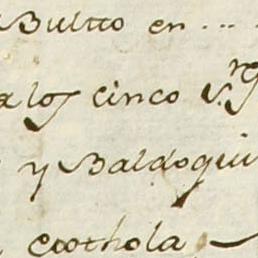 Bultto en ...
a los cinco S.res
y Baldoqui
Coothola